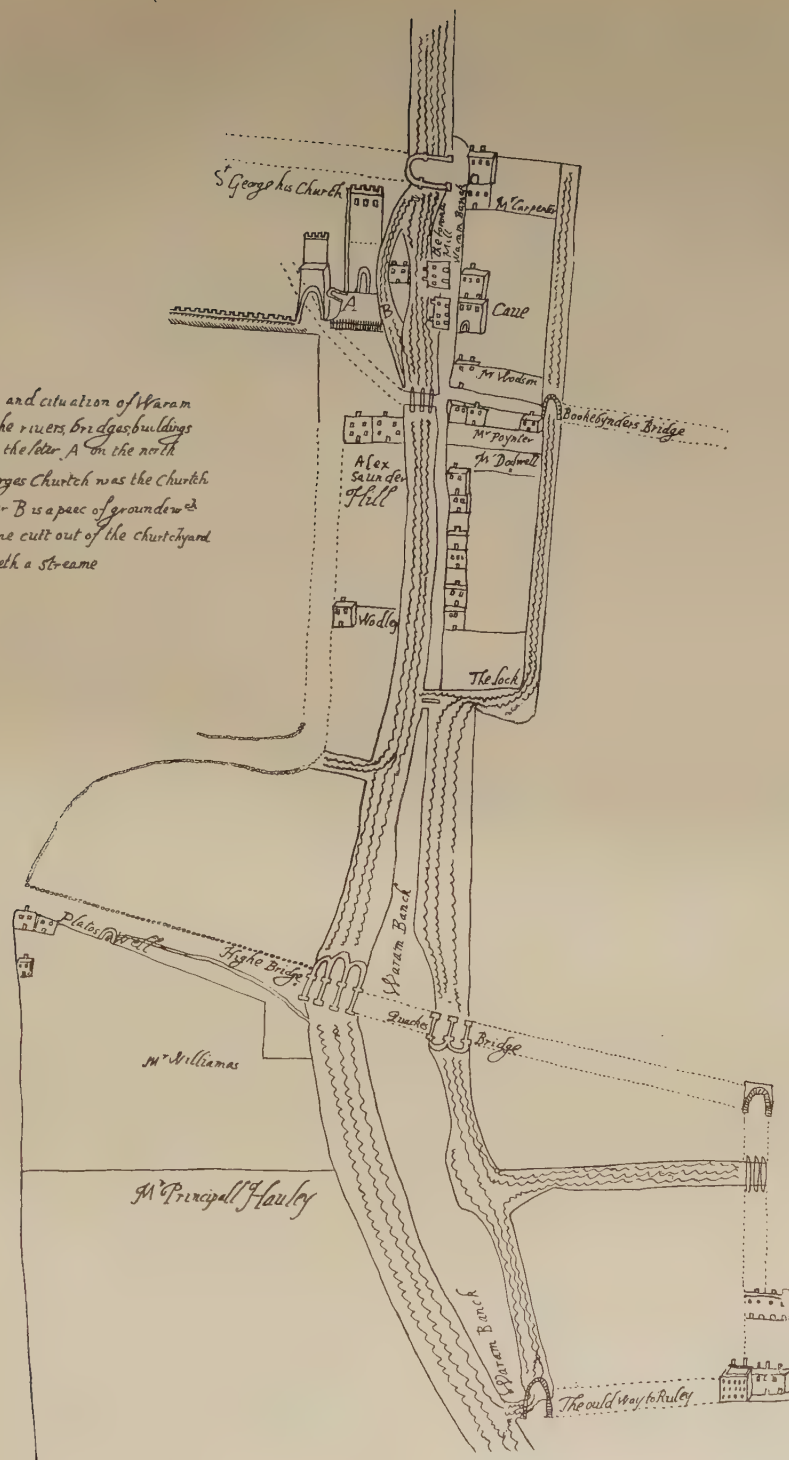 St George his Church
Mr Carpenter
Waram Banck
Mill
A
B
Caue
Mr Wodson
Bookebynders Bridge
Mr Poynter
Mr Dodwell
Alex
Saunder
Hill
and cituation of Waram
he riuers, bridges, buildings
the leter A on the north
rges Churtch was the Churtch
r B is a peec of grounde wch
ne cutt out of the churtchyard
eth a streame
Wodley
The lock
Waram Banck
Platos Well
Highe Bridge
Quaches Bridge
Mr Williamas
Mr Principall Hauley
Waram Banck
The ould way to Ruley